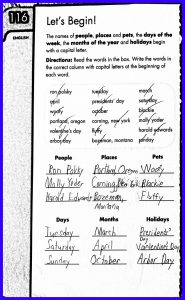 116
ENGLISH
Let's Begin!
The names of people, places and pets, the days of the
week, the months of the year and holidays begin
with a capital letter.
Directions: Read the words in the box. Write the words in
the correct column with capital letters at the beginning of
each word.
ron polsky tuesday march
april presidents' day saturday
woofy october blackie
portland, oregon corning, new york molly yoder
valentine's day fluffy harold edwards
arbor day bozeman, montana sunday
People Places Pets
Ron Polsky Portland, Oregon Woofy
Molly Yoder Corning, New York Blackie
Harold Edwards Bozeman, Fluffy
Montana
Days Months Holidays
Tuesday March Presidents'
Day
Saturday April Valentine's Day
Sunday October Arbor Day